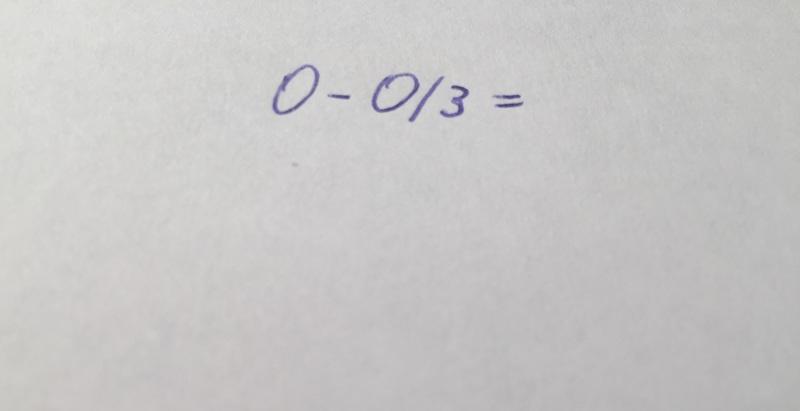 0 - 0/3 =